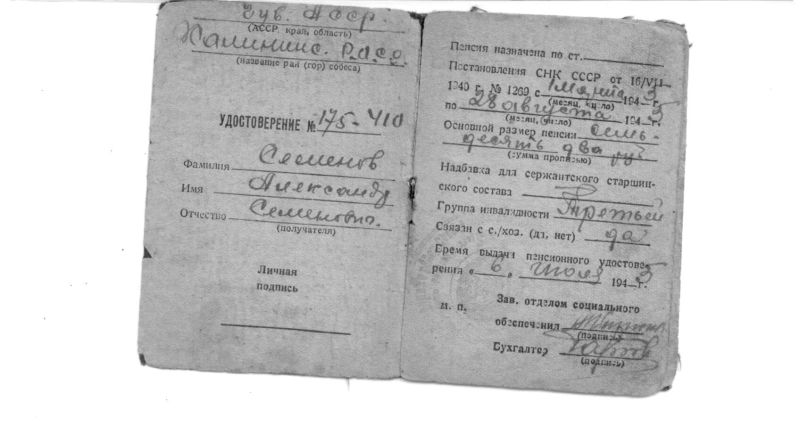 Чув. АССР.
(АССР, край, область)
Калининс. РАСО
(название рай (гор) собеса)
УДОСТОВЕРЕНИЕ № 175-410
Фамилия Семенов
Имя Александр
Отчество Семенович.
(получателя)
Личная
подпись
Пенсия назначена по ст.
Постановления СНК СССР от 16/VII-
1940 г. № 1269 с 1 194 5 г.
(месяц, число)
по 28 августа 194 5 г.
(месяц, число)
Основной размер пенсии семь-
десять два ру
(сумма прописью)
Надбавка для сержантского старшин-
ского состава
Группа инвалидности Третьей
Связан с с./хоз. (да, нет) да
Время выдачи пенсионного удостове-
рения « 6 » июля 194 5 г.
Зав. отделом социального
м. п.
обеспечения
(подпись)
Бухгалтер
(подпись)